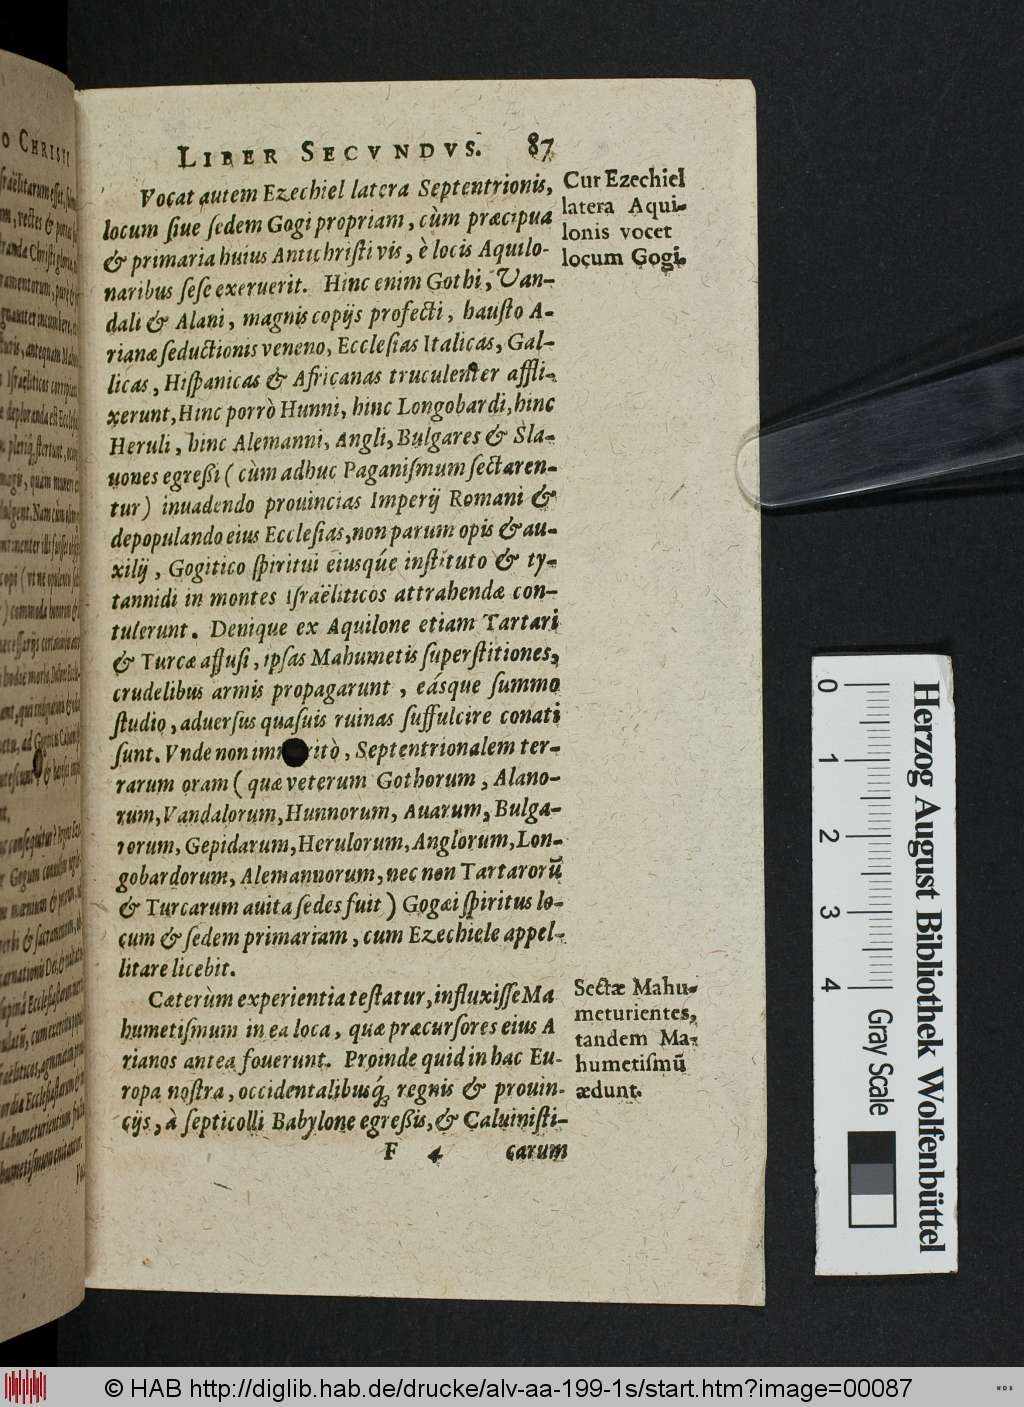 LIBER SECVNDVS. 87
Vocat autem Ezechiel latera Septentrionis,
locum siue sedem Gogi propriam, cùm præcipua
& primaria huius Antichristi vis, è locis Aquilo-
naribus sese exeruerit. Hinc enim Gothi, Van-
dali & Alani, magnis copijs profecti, hausto A-
rianæ seductionis veneno, Ecclesias Italicas, Gal-
licas, Hispanicas & Africanas truculenter affli-
xerunt, Hinc porrò Hunni, hinc Longobardi, hinc
Heruli, hinc Alemanni, Angli, Bulgares & Sla-
uones egreßi ( cùm adhuc Paganismum sectaren-
tur ) inuadendo prouincias Imperij Romani &
depopulando eius Ecclesias, non parum opis & au-
xilij, Gogitico spiritui eiusq́ue instituto & ty-
tannidi in montes Israëliticos attrahendæ con-
tulerunt. Denique ex Aquilone etiam Tartari
& Turcæ affusi, ipsas Mahumetis superstitiones,
crudelibus armis propagarunt, eásque summo
studio, aduersus quasuis ruinas suffulcire conati
sunt. Vnde non imm ritò, Septentrionalem ter-
rarum oram ( quæ veterum Gothorum, Alano-
rum, Vandalorum, Hunnorum, Auarum, Bulga-
rorum, Gepidarum, Herulorum, Anglorum, Lon-
gobardorum, Alemannorum, nec non Tartarorũ
& Turcarum auita sedes fuit ) Gogæi spiritus lo-
cum & sedem primariam, cum Ezechiele appel-
litare licebit.
Cæterùm experientia testatur, influxisse Ma
humetismum in ea loca, quæ præcursores eius A
rianos antea fouerunt. Proinde quid in hac Eu-
ropa nostra, occidentalibusq́; regnis & prouin-
cijs, à septicolli Babylone egreßis, & Caluinisti-
F 4 carum
Cur Ezechiel
latera Aqui-
lonis vocet
locum Gogi.
Sectæ Mahu-
meturientes,
tandem Ma-
humetismũ
ædunt.
0 1 2 3 4
Gray Scale
Herzog August Bibliothek Wolfenbüttel
© HAB http://diglib.hab.de/drucke/alv-aa-199-1s/start.htm?image=00087